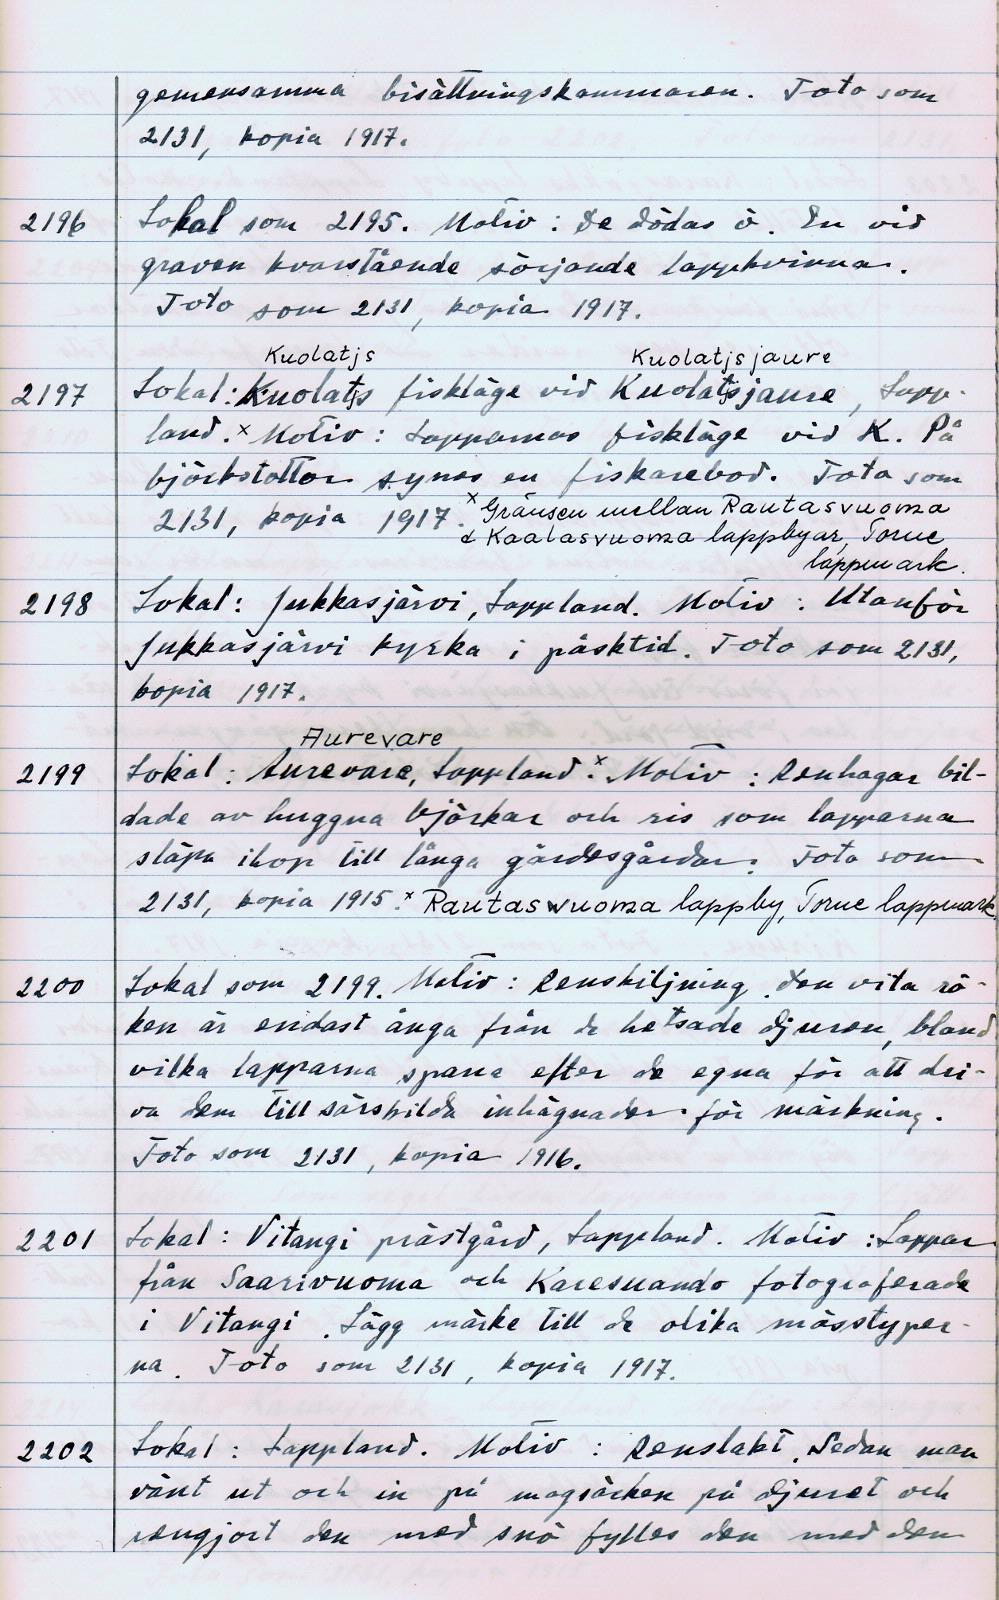 gemensamma bisättningskammaren. Foto som
2131, kopia 1917.
2196 Lokal som 2195. Motiv: De dödas ö. En vid
graven kvarstående sörjande lappkvinna.
Foto som 2131, kopia 1917.
Kuolatjs Kuolatjsjaure
2197 Lokal: Kuolatjs fiskläge vid Kuolatjsjaure, Lapp-
land.x Motiv: Lapparnas fiskläge vid K. På
björkstottor synes en fiskarebod. Foto som
2131, kopia 1917. x Gränsen mellan Rautasvuoma
& Kaalasvuoma lappbyar, Torne
lappmark.
2198 Lokal: Jukkasjärvi, Lappland. Motiv: Utanför
Jukkasjärvi kyrka i påsktid. Foto som 2131,
kopia 1917.
Aurevare
2199 Lokal: Aurevare, Lappland.x Motiv: Renhagar bil-
dade av huggna björkar och ris som lapparna
släpa ihop till långa gärdesgårdar. Foto som
2131, kopia 1915.x Rautasvuoma lappby, Torne lappmark.
2200 Lokal som 2199. Motiv: Renskiljning. Den vita rö-
ken är endast ånga från de hetsade djuren, bland
vilka lapparna spana efter de egna för att dri-
va dem till särskilda inhägnader för märkning.
Foto som 2131, kopia 1916.
2201 Lokal: Vitangi prästgård, Lappland. Motiv: Lappar
från Saarivuoma och Karesuando fotograferade
i Vitangi. Lägg märke till de olika mösstyper-
na. Foto som 2131, kopia 1917.
2202 Lokal: Lappland. Motiv: Renslakt. Sedan man
vänt ut och in på magsäcken på djuret och
rengjort den med snö fylles den med den